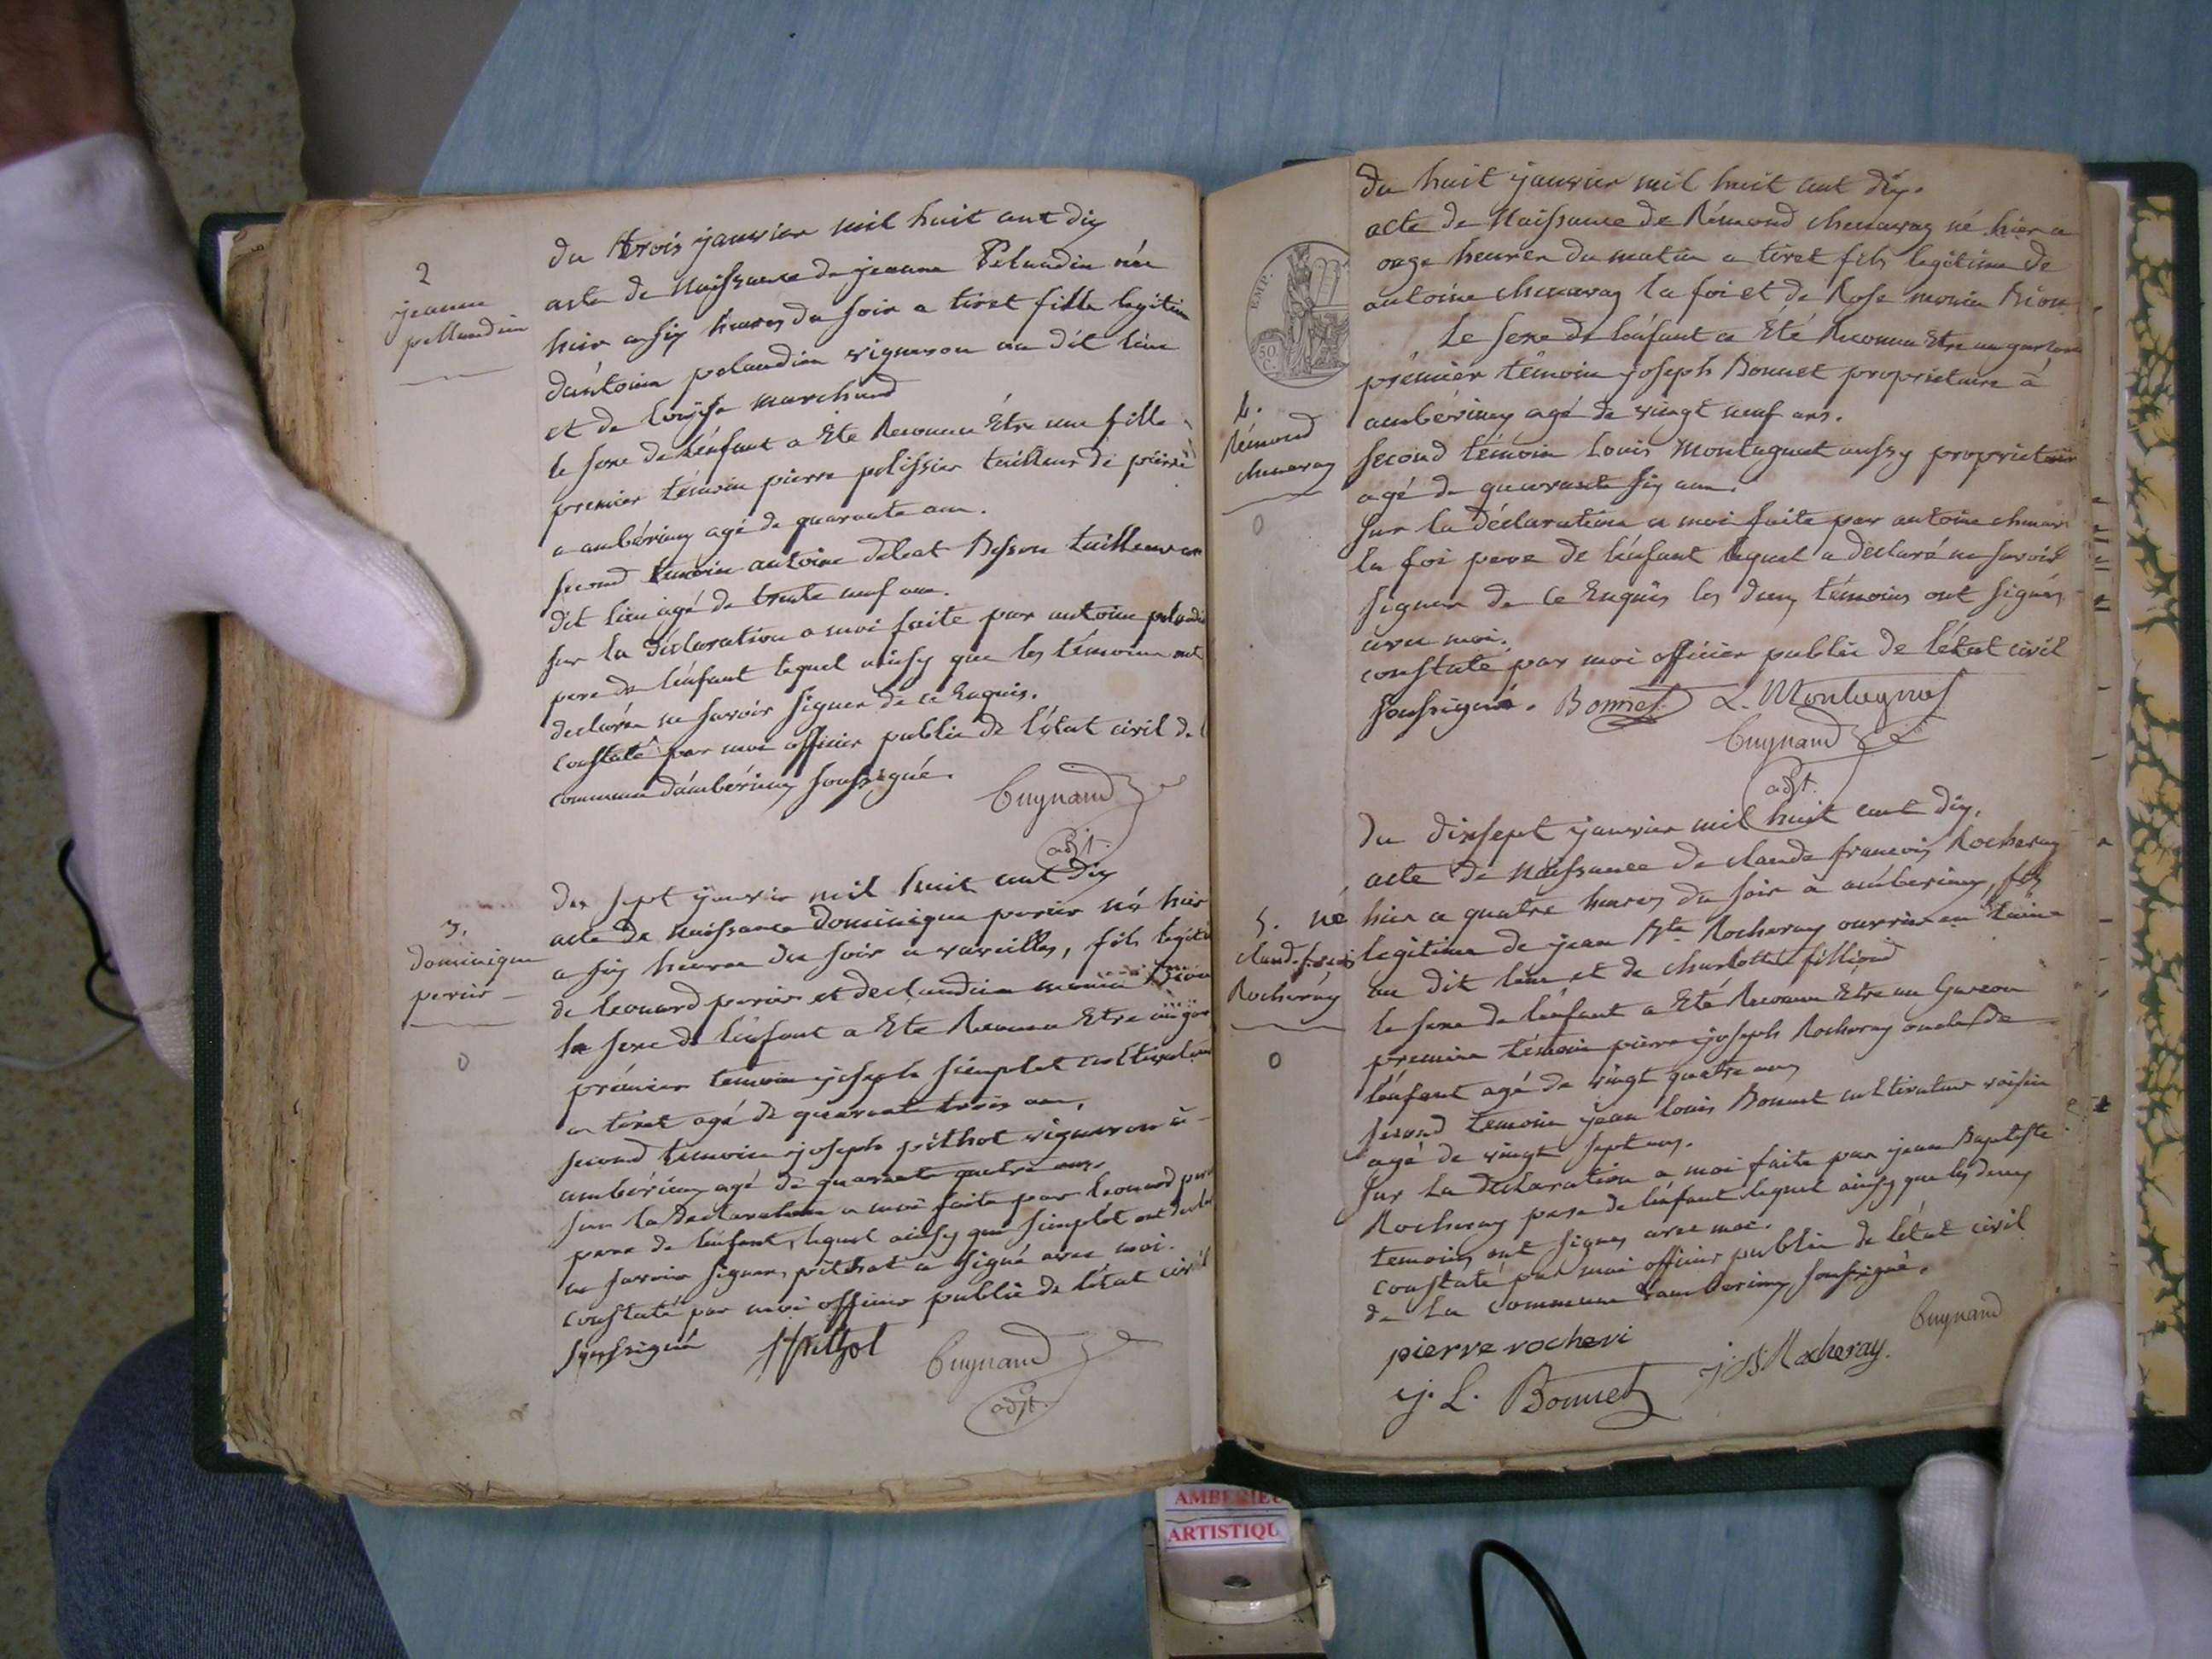 2
jeanne
pellaudin
du trois janvier mil huit cent dix
acte de Naissance de jeanne Pelaudin née
hier a six heures du soir a tiret fille legitim
d'antoine pelaudin vigneron au dit lieu
et de Loüise marchand
le sexe de l'enfant a Eté Reconnu Être une fille
premier témoin pierre pelissier tailleur de pierre
a ambérieux agé de quarante ans.
second temoin antoine Besson tailleur au
dit lieu agé de trente neuf ans.
sur la déclaration a moi faite par antoine pelaudi
pere de l'enfant lequel ainsy que les témoins ont
declarés ne savoir signer de ce Enquis.
constaté par moi officier public de l'état civil de
commune d'ambérieux soussigné.
Cuynand
adjt.
3.
dominique
perier
0
du sept janvier mil huit cent dix
acte de Naissance Dominique perier né hier
a six heures du soir a vareilles, fils legiti
de Léonard perier et de claudine
le sexe de l'enfant a Eté Reconnu Etre un gar
prémier temoin joseph simplet cultivateur
a tiret agé de quarante trois ans,
second temoin joseph pithot vigneron à
ambérieux agé de quarante quatre ans.
sur la declaration a moi faite par Léonard per
pere de l'enfant, lequel ainsy que simplet ont decla
ne savoir signer, pithot a signé avec moi.
constaté par moi officier public de l'état civil
soussigné
Pithot
Cuynand
adjt.
EMP.
50
C.
4.
Rémond
chenavay
0
Du huit janvier mil huit cent dix.
acte de Naissance de Rémond chenavay né hier a
onze heures du matin a tiret fils legitime de
antoine chenavay la foi et de Rose Bion
Le sexe de l'enfant a Été Reconnu Etre un garcon
prémier témoin joseph Bonnet proprietaire à
ambérieux agé de vingt neuf ans.
second témoin Louis Montagnat aussy proprietair
agé de quarante six ans.
sur la déclaration a moi faite par antoine chenav
la foi pere de l'enfant lequel a declaré ne savoir
signer de ce Enquis les deux témoins ont signés
avec moi.
constaté par moi officier public de l'état civil
soussigné.
Bonnet
L. Montagnat
Cuynand
adjt.
5.
claud.fçois
Rocheray
0
du dixsept janvier mil huit cent dix.
acte de Naissance de claude francois Rocheray
né hier a quatre heures du soir à ambérieux, fils
legitime de jean Bte Rocheray ouvrier en laine
au dit lieu et de charlotte filliod
le sexe de l'enfant a Eté Reconnu Etre un Garcon
premier témoin pierre joseph Rocheray oncle de
l'enfant agé de vingt quatre ans
second temoin jean Louis Bonnet cultivateur voisin
agé de vingt sept ans.
sur la declaration a moi faite par jean Baptiste
Rocheray pere de l'enfant lequel ainsy que les deux
temoins ont signés avec moi.
constaté par moi officier public de l'état civil
de la commune d'amberieux soussigné.
pierre rocheri
j B Rocheray.
Cuynand
j. L. Bonnet
AMBERIEU
ARTISTIQU